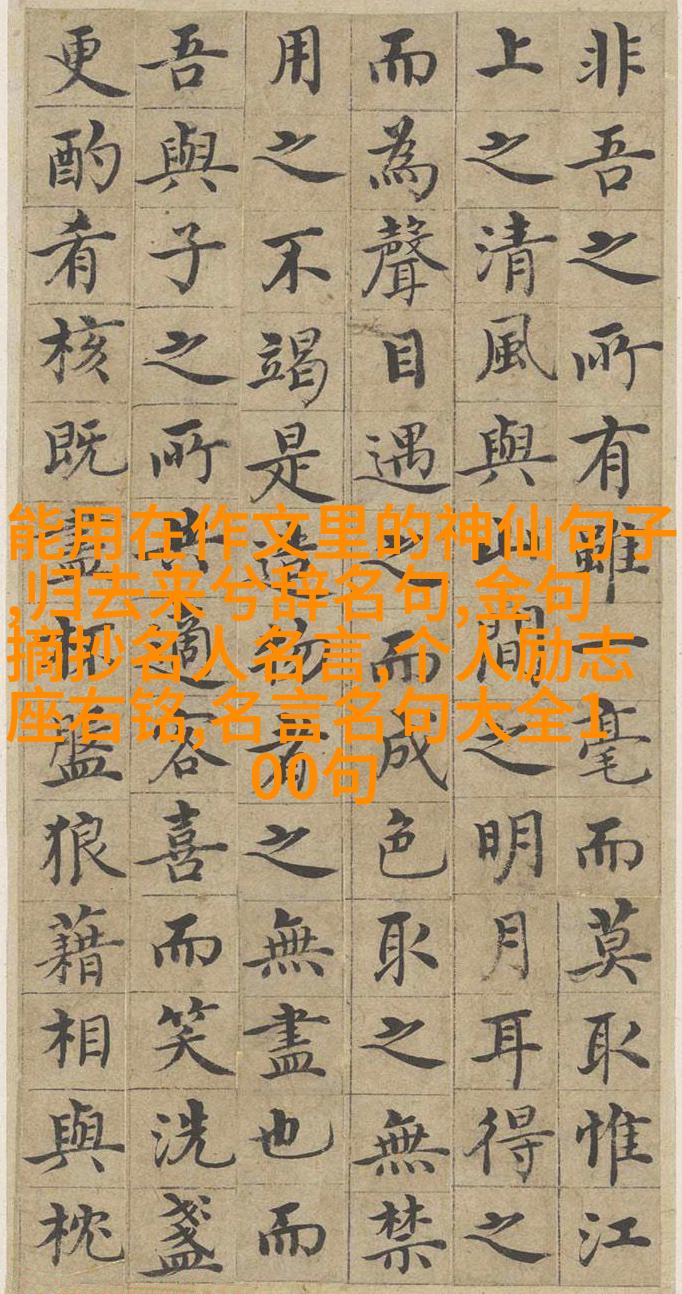 非吾之所有雖一毫而莫取惟江
上之清風與山間之明月耳得之
而為聲目遇之而成色取之無禁
用之不竭是造物者之無盡也而
吾與子之所共適客喜而笑洗盞
更酌肴核既盡杯盤狼藉相與枕
能用在作文里的神仙句子
,归去来兮辞名句,金句
摘抄名人名言,个人励志
座右铭,名言名句大全1
00句